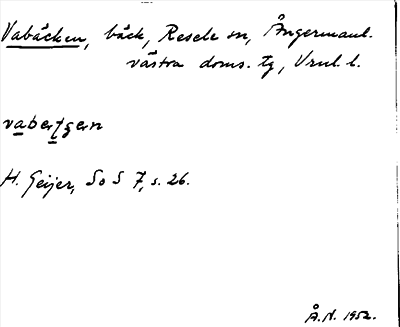 Vabäcken, bäck, Resele sn, Ångermanl.
västra doms. tg, Vrnl. l.
vabertgern
H. Geijer, SoS 7, s. 26.
Å.N. 1952.